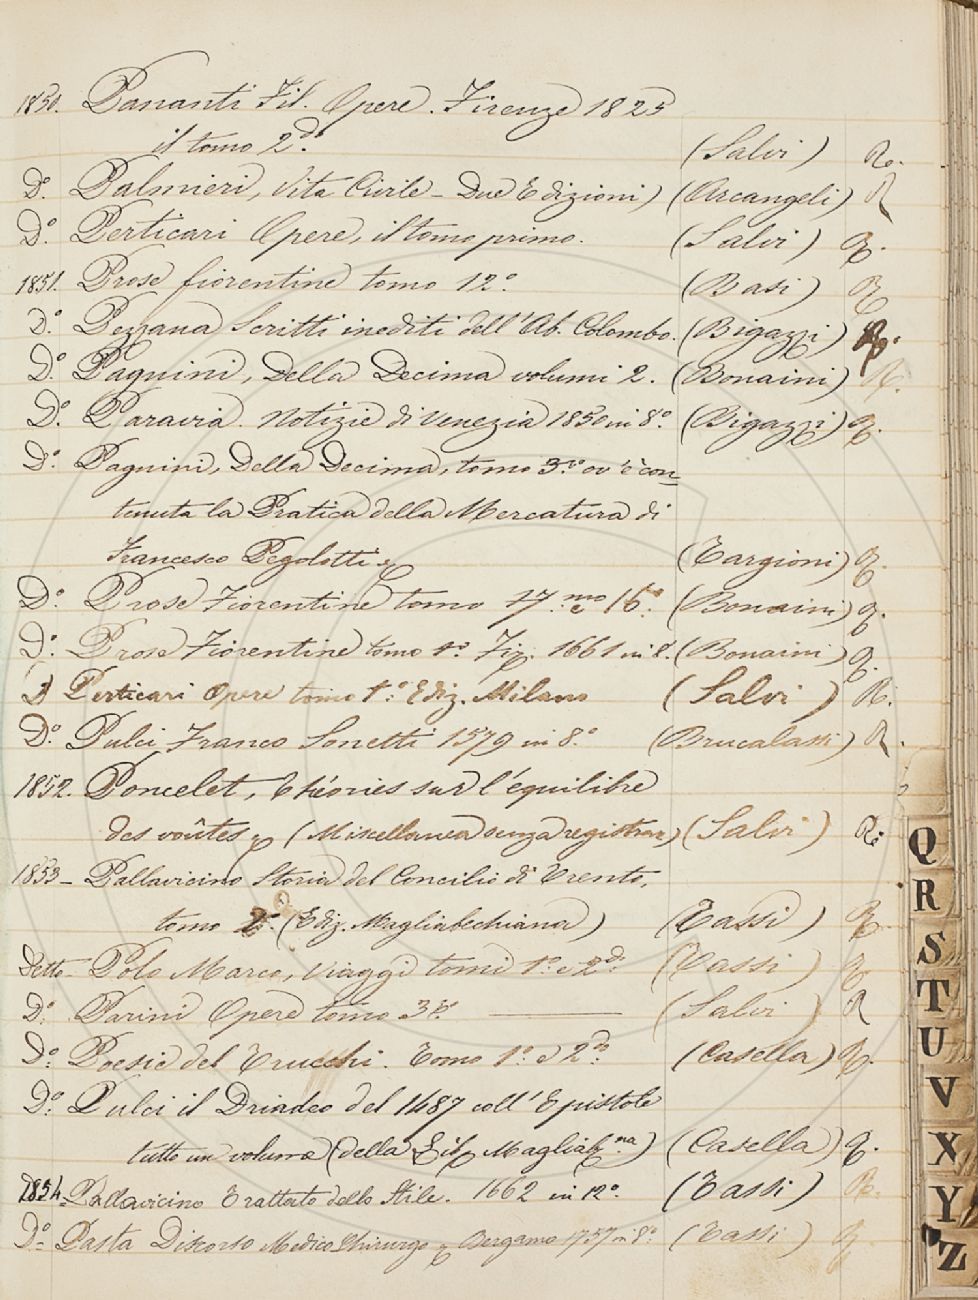 1850. Pananti Fil. Opere. Firenze 1825
il tomo 2.do (Salvi) R.
Do. Palmieri, Vita Civile - Due Edizioni) (Arcangeli) R
Do. Perticari Opere, il tomo primo. (Salvi) R.
1851. Prose fiorentine tomo 12.o (Basi) R
Do. Pezzana Scritti inediti dell'Ab. Colombo. (Bigazzi) R.
Do. Pagnini, Della Decima volumi 2. (Bonaini) R.
Do. Paravia. Notizie di Venezia 1850 in 8.o (Bigazzi) R.
Do. Pagnini, Della Decima, tomo 3.zo ov'è con=
tenuta la Pratica della Mercatura di
Francesco Pegolotti (Targioni) R.
Do. Prose Fiorentine tomo 17.mo e 16.o (Bonaini) R.
Do. Prose Fiorentine tomo 1.o Fir. 1661 in 8. (Bonaini) R.
D Perticari Opere tomo 1.o Ediz. Milano (Salvi) R.
Do. Pulci, Franco Sonetti 1579 in 8.o (Brucalassi) R.
1852. Poncelet, Théories sur l'équilibre
des voûtes (Miscellanea senza registrar) (Salvi) R.
1853 - Pallavicino Storia del Concilio di Trento,
tomo 2.o (Ediz. Magliabechiana) (Tassi) R
Detto - Polo Marco, Viaggi tomi 1.o e 2.do (Tassi) R
Do. Parini Opere tomo 3.zo (Salvi) R
Do. Poesie del Trucchi. Tomo 1.o e 2.do (Casella) R.
Do. Pulci il Driadeo del 1487 coll'Epistole
tutto un volume (della Lib. Magliab.na) (Casella) R.
1854. Pallavicino Trattato dello Stile. 1662 in 12.o (Tassi) R.
Do. Pasta Discorso Medico Chirurgo Bergamo 1757 in 8.o (Tassi) R
Q
R
S
T
U
V
X
Y
Z